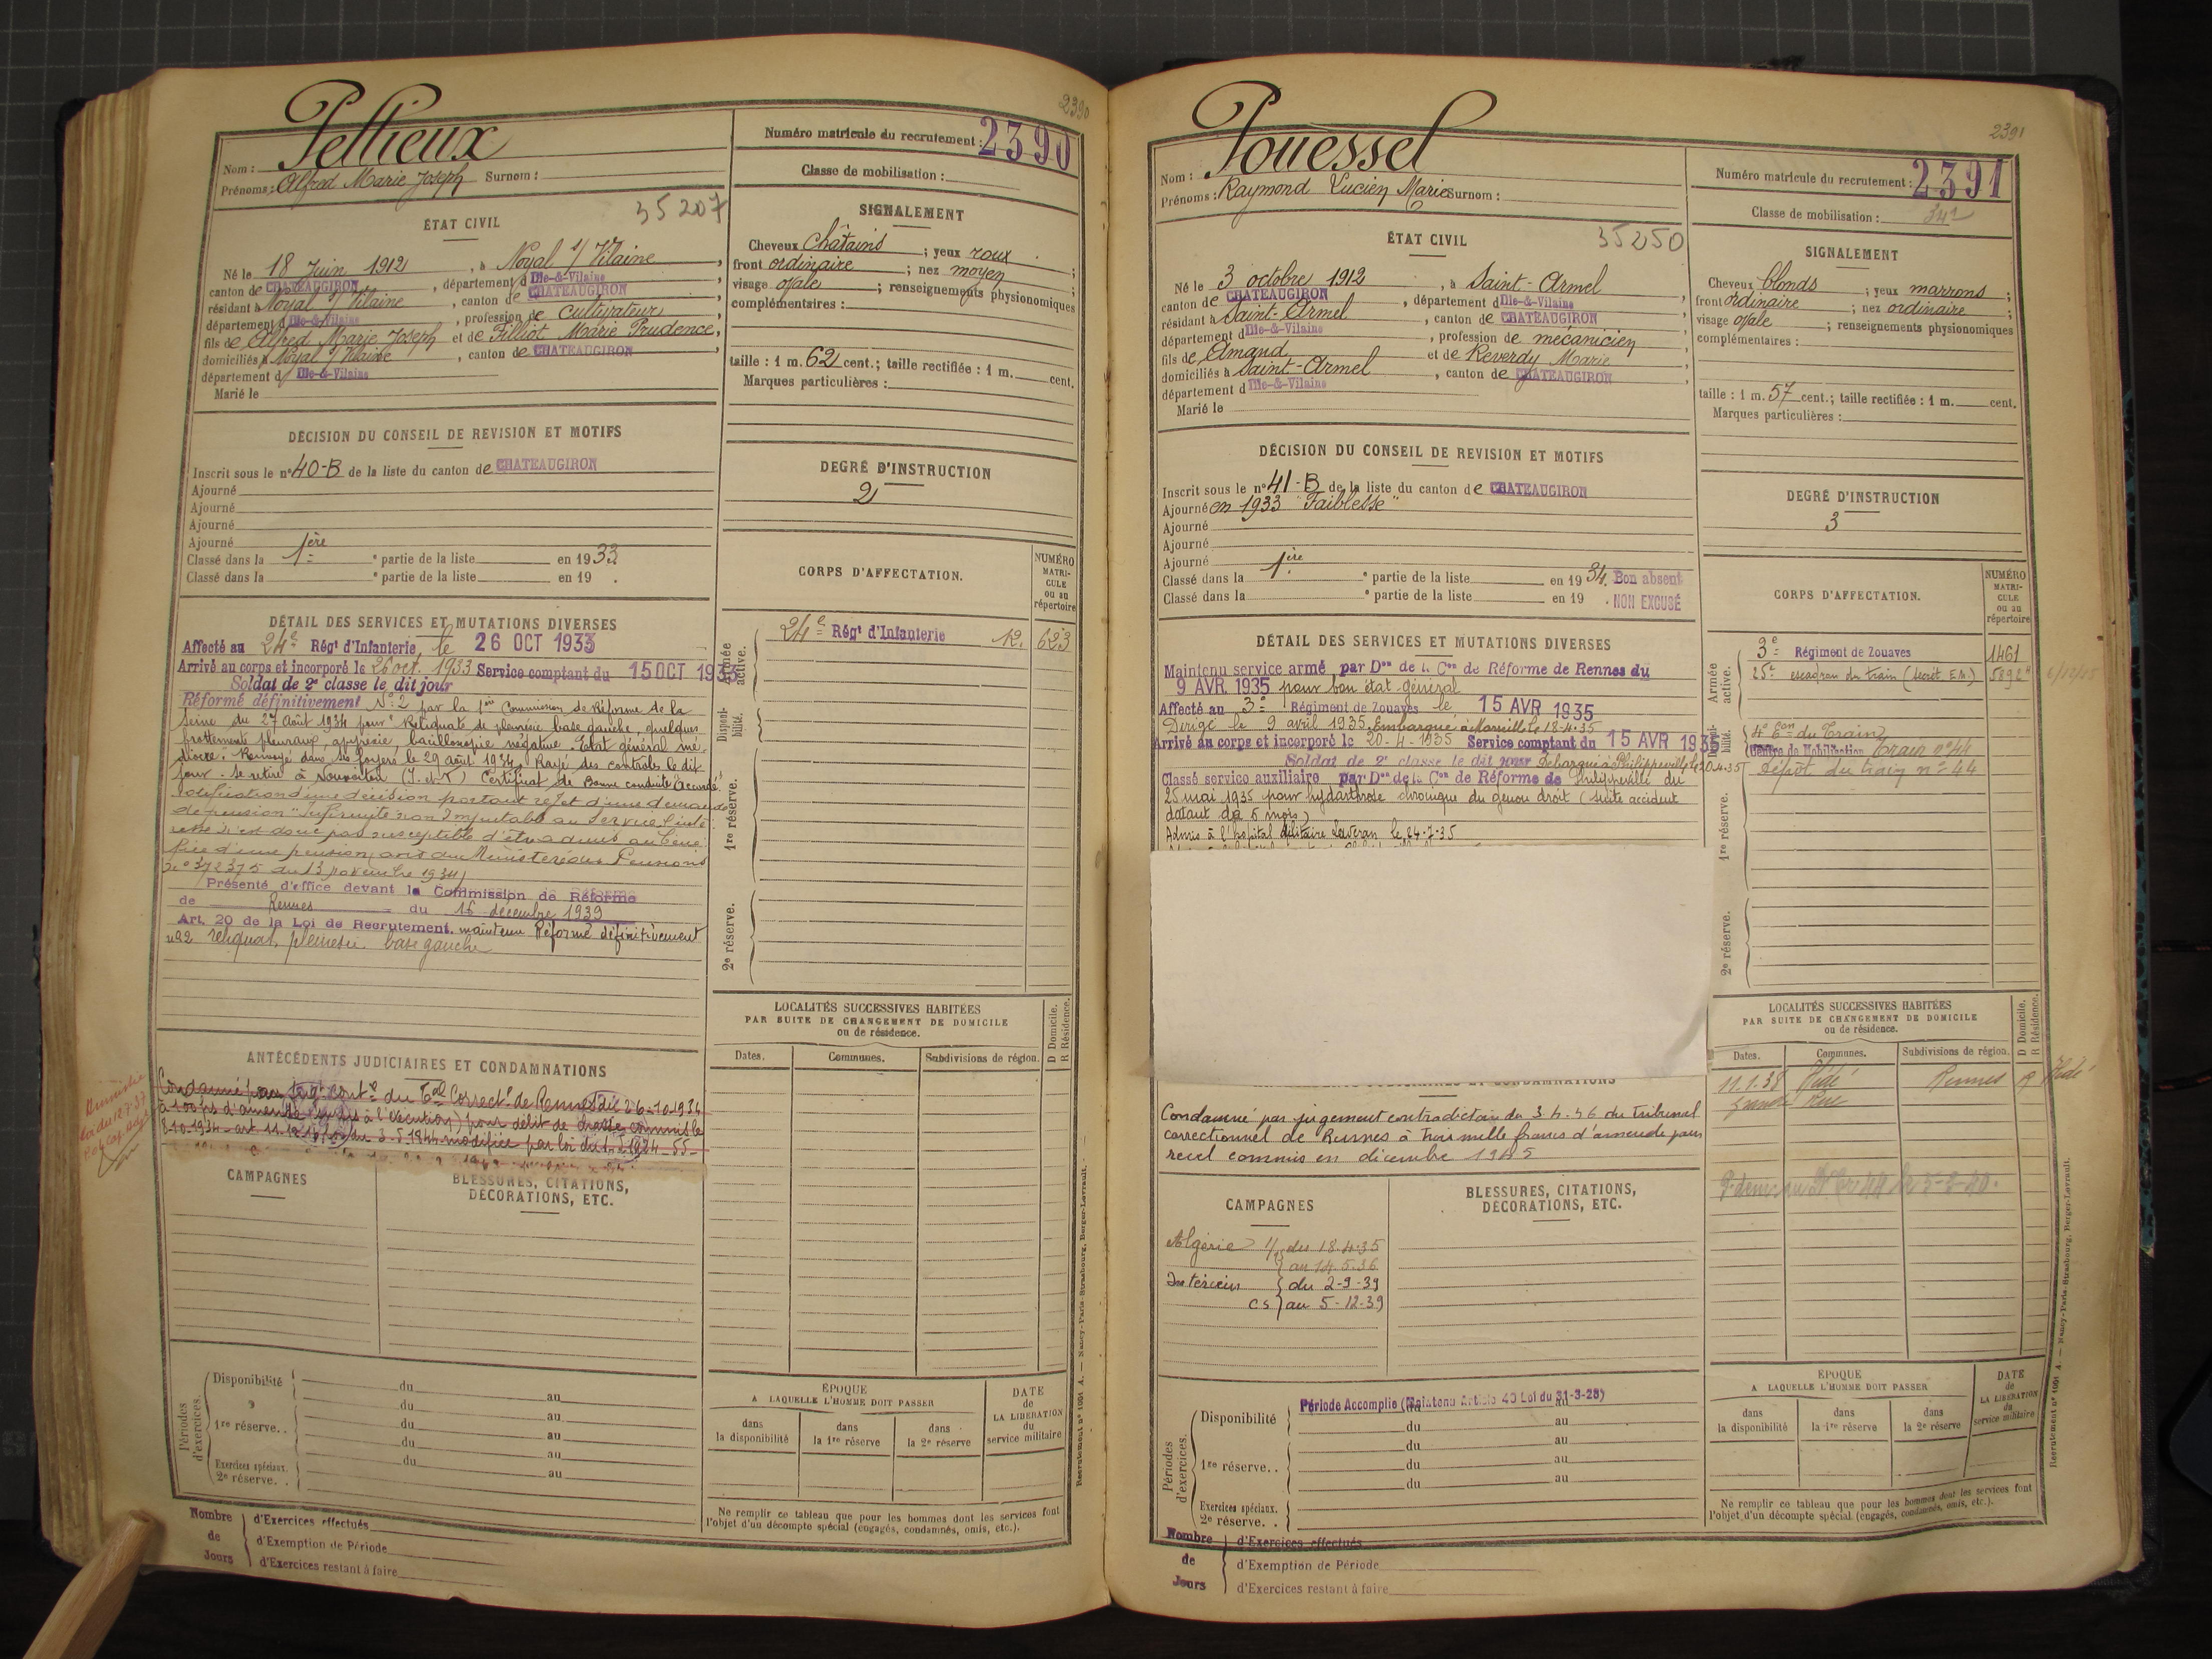 2390
Numéro matricule du recrutement : 2390
Nom : Pellieux
Prénoms : Alfred Marie Joseph Surnom :
Classe de mobilisation :
35207
ÉTAT CIVIL
Né le 18 Juin 1912, à Noyal s/ Vilaine,
canton de CHATEAUGIRON, département d Ille-&-Vilaine
résidant à Noyal s/ Vilaine, canton de CHATEAUGIRON,
département d Ille-&-Vilaine, profession de cultivateur,
fils de Alfred Marie Joseph et de Filliot Marie Prudence,
domiciliés à Noyal s/ Vilaine, canton de CHATEAUGIRON,
département d Ille-&-Vilaine
Marié le
SIGNALEMENT
Cheveux châtains ; yeux roux ;
front ordinaire ; nez moyen ;
visage ovale ; renseignements physionomiques
complémentaires :
taille : 1 m. 62 cent.; taille rectifiée : 1 m. cent.
Marques particulières :
DÉCISION DU CONSEIL DE REVISION ET MOTIFS
Inscrit sous le n° 40-B de la liste du canton de CHATEAUGIRON
Ajourné
Ajourné
Ajourné
Ajourné
Classé dans la 1ère partie de la liste en 1933
Classé dans la partie de la liste en 19 .
DEGRÉ D'INSTRUCTION
2
DÉTAIL DES SERVICES ET MUTATIONS DIVERSES
Affecté au 24e Régt d'Infanterie, le 26 OCT 1933
Arrivé au corps et incorporé le 26 oct. 1933 Service comptant du 15 OCT 1933
Soldat de 2e classe le dit jour
Réformé définitivement N° 2 par la 1ère Commission de Réforme de la
Seine du 27 Août 1934 pour "Reliquats de pleurésie base gauche, quelques
frottements pleuraux, apyrésie, bacilloscopie négative. Etat général mé-
diocre." Renvoyé dans ses foyers le 29 août 1934. Rayé des contrôles le dit
jour. Se retire à (I.-et-V.) Certificat de Bonne conduite "Accordé"
Notification d'une décision portant rejet d'une demande
de pension "Infirmité non imputable au service l'inté-
ressé n'est donc pas susceptible d'être admis au béné-
fice d'une pension, avis du Ministère des Pensions
N° 372375 du 13 novembre 1934
Présenté d'office devant la Commission de Réforme
de Rennes du 16 décembre 1939
Art. 20 de la Loi de Recrutement. maintenu Réformé définitivement
n° 2 reliquat pleurésie base gauche
CORPS D'AFFECTATION.
NUMÉRO MATRICULE ou au répertoire
Armée active.
24e Régt d'Infanterie 12. 623
Disponibilité.
1re réserve.
2e réserve.
ANTÉCÉDENTS JUDICIAIRES ET CONDAMNATIONS
Condamné par jugt contre du Tal Correctl de Rennes du 26-10-1934
à 100 frs d'amende (sursis à l'exécution) pour délit de chasse commis le
8-10-1934 - art. 11.12.16 loi du 3-5-1844 modifiée par loi du
Amnistié
loi du 12.7.37
CAMPAGNES
BLESSURES, CITATIONS, DÉCORATIONS, ETC.
LOCALITÉS SUCCESSIVES HABITÉES
PAR SUITE DE CHANGEMENT DE DOMICILE
ou de résidence.
D Domicile.
R Résidence.
Dates. Communes. Subdivisions de région.
Périodes d'exercices.
Disponibilité du au
du au
1re réserve. . du au
du au
Exercices spéciaux. du au
2e réserve. .
ÉPOQUE
A LAQUELLE L'HOMME DOIT PASSER
dans la disponibilité
dans la 1re réserve
dans la 2e réserve
DATE de LA LIBÉRATION du service militaire
Ne remplir ce tableau que pour les hommes dont les services font
l'objet d'un décompte spécial (engagés, condamnés, omis, etc.).
Nombre de Jours
d'Exercices effectués
d'Exemption de Période
d'Exercices restant à faire
Recrutement n° 1061 A. — Nancy-Paris-Strasbourg, Berger-Levrault.
2391
Numéro matricule du recrutement : 2391
Nom : Pouessel
Prénoms : Raymond Lucien Marie Surnom :
Classe de mobilisation :
35250
ÉTAT CIVIL
Né le 3 octobre 1912, à Saint-Armel
canton de CHATEAUGIRON, département d Ille-&-Vilaine
résidant à Saint-Armel, canton de CHATEAUGIRON
département d Ille-&-Vilaine, profession de mécanicien
fils de Amand et de Reverdy Marie
domiciliés à Saint-Armel, canton de CHATEAUGIRON
département d Ille-&-Vilaine
Marié le
SIGNALEMENT
Cheveux blonds ; yeux marrons ;
front ordinaire ; nez ordinaire ;
visage ovale ; renseignements physionomiques
complémentaires :
taille : 1 m. 57 cent.; taille rectifiée : 1 m. cent.
Marques particulières :
DÉCISION DU CONSEIL DE REVISION ET MOTIFS
Inscrit sous le n° 41-B de la liste du canton de CHATEAUGIRON
Ajourné en 1933 "Faiblesse"
Ajourné
Ajourné
Ajourné
Classé dans la 1ère partie de la liste en 1934. Bon absent
Classé dans la partie de la liste en 19 . NON EXCUSÉ
DEGRÉ D'INSTRUCTION
3
DÉTAIL DES SERVICES ET MUTATIONS DIVERSES
Maintenu service armé par Don de la Con de Réforme de Rennes du
9 AVR. 1935 pour bon état général
Affecté au 3e Régiment de Zouaves le 15 AVR 1935
Dirigé le 9 avril 1935. Embarqué à Marseille le 18-4-35
Arrivé au corps et incorporé le 20-4-1935 Service comptant du 15 AVR 1935
Soldat de 2e classe le dit jour Débarqué à Philippeville le 20.4.35
Classé service auxiliaire par Don de la Con de Réforme de Philippeville du
25 mai 1935 pour hydarthrose chronique du genou droit (suite accident
datant de 6 mois)
Admis à l'hopital Militaire Laveran le 24-7-35
CORPS D'AFFECTATION.
NUMÉRO MATRICULE ou au répertoire
Armée active.
3e Régiment de Zouaves 1461
25e escadron du train (Secrét E.M.)
Disponibilité.
4e Eon du Train
Centre de Mobilisation Train n° 44
Dépôt du train n° 44
1re réserve.
2e réserve.
Condamné par jugement contradictoire du 3.4.46 du Tribunal
correctionnel de Rennes à Trois mille francs d'amende pour
recel commis en décembre 1945
CAMPAGNES
Algérie du 18.4.35
au 14.5.36
Intérieur du 2-9-39
CS au 5-12-39
BLESSURES, CITATIONS, DÉCORATIONS, ETC.
LOCALITÉS SUCCESSIVES HABITÉES
PAR SUITE DE CHANGEMENT DE DOMICILE
ou de résidence.
D Domicile.
R Résidence.
Dates. Communes. Subdivisions de région.
11.1.38 Hédé Rennes R Hédé
Grande Rue
Périodes d'exercices.
Période Accomplie (Maintenu Article 40 Loi du 31-3-28)
Disponibilité du au
du au
1re réserve. . du au
du au
Exercices spéciaux.
2e réserve. .
ÉPOQUE
A LAQUELLE L'HOMME DOIT PASSER
dans la disponibilité
dans la 1re réserve
dans la 2e réserve
DATE de LA LIBÉRATION du service militaire
Ne remplir ce tableau que pour les hommes dont les services font
l'objet d'un décompte spécial (engagés, condamnés, omis, etc.).
Nombre de Jours
d'Exercices effectués
d'Exemption de Période
d'Exercices restant à faire
Recrutement n° 1061 A. — Nancy-Paris-Strasbourg, Berger-Levrault.